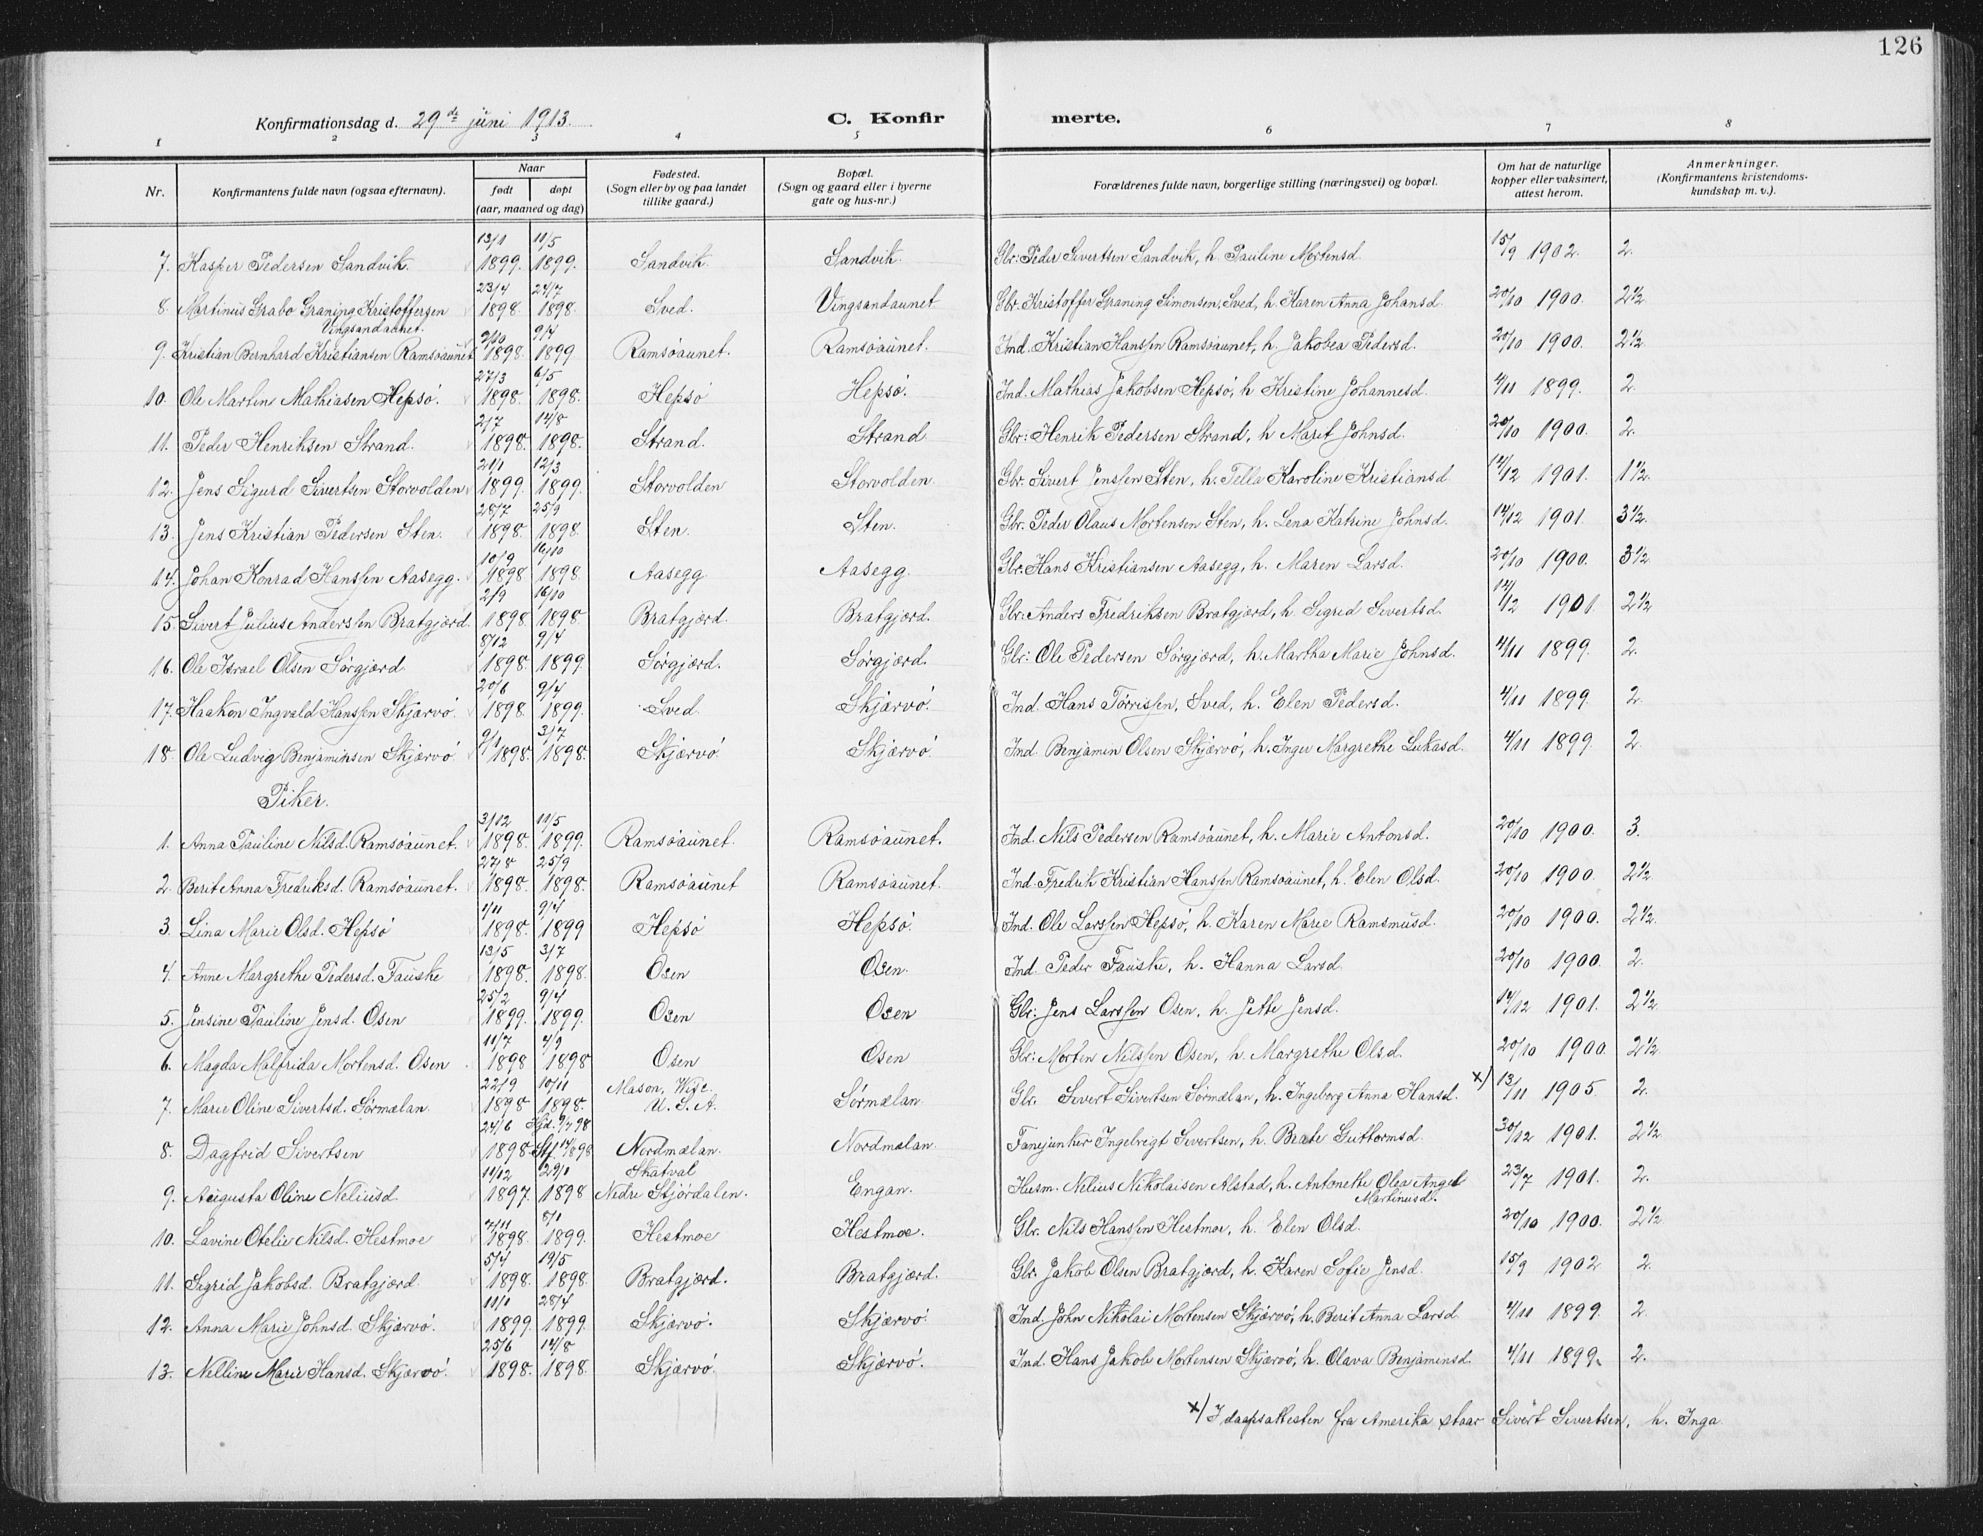 126
Konfirmationsdag d. 29de juni 1913. C. Konfirmerte.
1 2 3 4 5 6 7 8
Nr. Konfirmantens fulde navn (ogsaa efternavn). Naar født døpt (aar, maaned og dag) Fødested. (Sogn eller by og paa landet tillike gaard.) Bopæl. (Sogn og gaard eller i byerne gate og hus-nr.) Forældrenes fulde navn, borgerlige stilling (næringsvei) og bopæl. Om hat de naturlige kopper eller vaksinert, attest herom. Anmerkninger. (Konfirmantens kristendomskundskap m. v.).
7. Kasper Pedersen Sandvik. 13/1 1899. 11/5 1899. Sandvik. Sandvik. Gbr: Peder Sivertsen Sandvik, h. Pauline Mortensd. 15/9 1902. 2.
8. Martinus Grabo Graning Kristoffersen Vingsandaunet. 23/4 1898. 24/7 1898. Sved. Vingsandaunet Gbr. Kristoffer Graning Simonsen, Sved, h. Karen Anna Johansd. 20/10 1900. 2½
9. Kristian Bernhard Kristiansen Ramsøaunet 2/10 1898. 9/4 1899 Ramsøaunet. Ramsøaunet. Ind. Kristian Hanssen Ramsøaunet, h. Jakobea Pedersd. 20/10 1900. 2½
10. Ole Martin Mathiasen Hepsø. 27/3 1898. 6/5 1898. Hepsø Hepsø. Ind. Mathias Jakobsen Hepsø, h. Kristine Johannesd. 4/11 1899. 2.
11. Peder Henriksen Strand. 2/7 1898. 14/8 1898. Strand. Strand Gbr: Henrik Pedersen Strand, h. Marit Johnsd. 20/10 1900. 2.
12. Jens Sigurd Sivertsen Storvolden 21/1 1899. 12/3 1899. Storvolden Storvolden. Gbr. Sivert Jenssen Sten, h. Pella Karoline Kristiansd 14/12 1901. 1½.
13. Jens Kristian Pedersen Sten. 28/7 1898. 25/9 1898 Sten. Sten. Gbr. Peder Olaus Mortensen Sten, h. Lena Katrine Johnsd. 14/12 1901. 3½.
14. Johan Konrad Hanssen Aasegg. 10/9 1898 16/10 1898. Aasegg Aasegg. Gbr. Hans Kristiansen Aasegg, h. Maren Larsd. 20/10 1900. 3½
15. Sivert Julius Anderssen Bratgjørd 2/9 1898. 16/10 1898. Bratgjørd. Bratgjørd. Gbr: Anders Fredriksen Bratgjørd, h. Sigrid Sivertsd. 14/12 1901. 2½
16. Ole Israel Olsen Sørgjærd. 8/12 1898. 9/4 1899 Sørgjærd. Sørgjærd. Gbr: Ole Pedersen Sørgjærd, h. Martha Marie Johnsd. 4/11 1899. 2.
17. Haakon Ingvald Hanssen Skjærvø. 20/6 1898. 9/4 1899. Sved. Skjærvø. Ind. Hans Tørrissen, Sved, h. Elen Pedersd. 4/11 1899. 2.
18. Ole Ludvig Benjaminsen Skjærvø 9/1 1898. 3/7 1898. Skjærvø. Skjærvø. Ind. Benjamin Olsen Skjærvø, h. Inger Margrethe Lukasd. 4/11 1899. 2.
Piker.
1. Anna Pauline Nilsd. Ramsøaunet. 3/12 1898. 11/5 1899. Ramsøaunet. Ramsøaunet. Ind. Nils Pedersen Ramsøaunet, h. Marie Antonsd. 20/10 1900. 3.
2. Berit Anna Fredriksd. Ramsøaunet. 27/8 1898. 25/9 1898. Ramsøaunet Ramsøaunet. Ind. Fredrik Kristian Hanssen Ramsøaunet, h. Elen Olsd. 20/10 1900. 2½
3. Lina Marie Olsd. Hepsø 1/11 1898. 9/4 1899 Hepsø Hepsø. Ind. Ole Larssen Hepsø, h. Karen Marie Ramsmusd. 20/10 1900. 2½.
4. Anne Margrethe Pedersd. Fauske 13/5 1898. 3/7 1898. Osen Osen. Ind. Peder Fauske, h. Hanna Larsd. 20/10 1900. 2.
5. Jensine Pauline Jensd. Osen 25/2 1899. 9/4 1899. Osen Osen Gbr: Jens Larssen Osen, h. Jette Jensd. 14/12 1901. 2½
6. Magda Malfrida Mortensd. Osen 11/7 1898 4/9 1898 Osen Osen Gbr: Morten Nilssen Osen, h. Margrethe Olsd. 20/10 1900. 2½
7. Marie Oline Sivertsd. Sørmælan. 22/9 1898 10/11 1898. Mason, Wisc. U. S. A. Sørmælan. Gbr. Sivert Sivertsen Sørmælan, h. Ingeborg Anna Hansd. x) 13/11 1905 2.
8. Dagfrid Sivertsen 24/6 1898 Nordmælan. Nordmælan Fanejunker Ingebrigt Sivertsen, h. Brate Guttormsd. 30/12 1901. 2½
9. Augusta Oline Neliusd. 11/12 1897. 29/1 1898 Skatval Nedre Stjørdalen. Engan. Husm. Nelius Nikolaisen Alstad, h. Antonette Olea Angel Martinusd. 23/7 1901. 2.
10. Lavine Otelie Nilsd. Hestmoe 7/11 1898. 8/1 1899. Hestmoe Hestmoe. Gbr. Nils Hanssen Hestmoe, h. Elen Olsd. 20/10 1900. 2½
11. Sigrid Jakobsd. Bratgjærd. 5/4 1898. 19/5 1898. Bratgjærd. Bratgjærd. Gbr. Jakob Olsen Bratgjørd, h. Karen Sofie Jensd. 15/9 1902 2.
12. Anna Marie Johnsd. Skjærvø. 11/1 1899. 28/4 1899. Skjærvø. Skjærvø. Ind. John Nikolai Mortensen Skjærvø, h. Berit Anna Larsd. 4/11 1899. 2.
13. Nelline Marie Hansd. Skjærvø. 25/6 1898. 14/8 1898. Skjærvø. Skjærvø. Ind. Hans Jakob Mortensen Skjærvø, h. Olava Benjaminsd. 4/11 1899. 2.
x) I daapsattesten fra Amerika staar Sivert Sivertsen, h. Inga